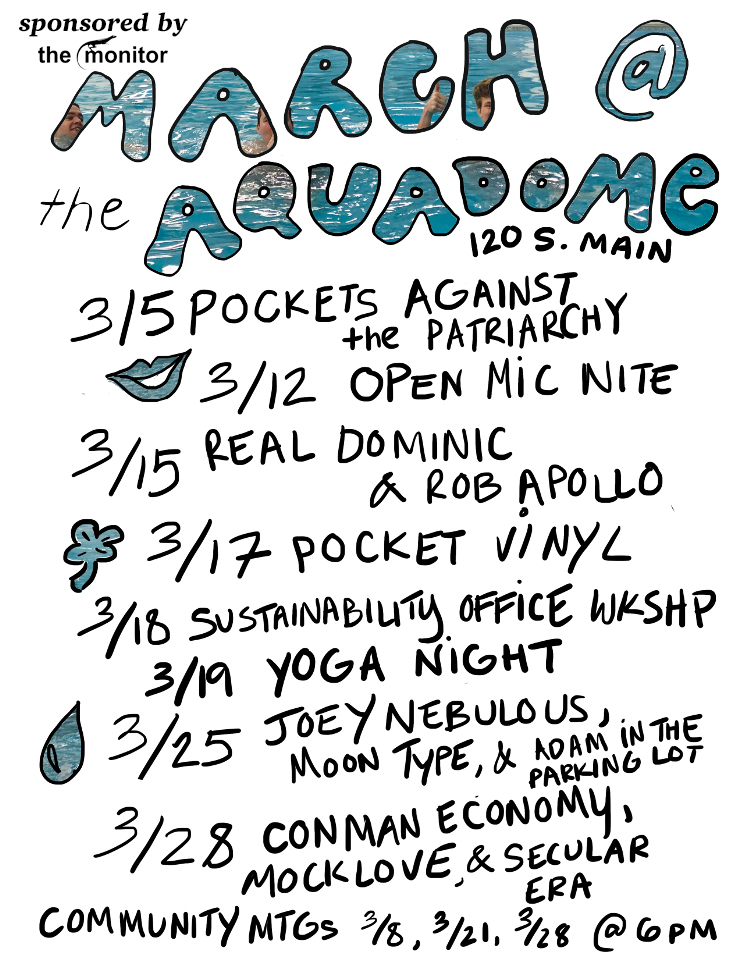 sponsored by
the monitor
MARCH @
the AQUADOME
120 S. MAIN
3/5 POCKETS AGAINST
the PATRIARCHY
3/12 OPEN MIC NITE
3/15 REAL DOMINIC
& ROB APOLLO
3/17 POCKET VINYL
3/18 SUSTAINABILITY OFFICE WKSHP
3/19 YOGA NIGHT
3/25 JOEY NEBULOUS,
MOON TYPE, & ADAM IN THE
PARKING LOT
3/28 CONMAN ECONOMY,
MOCKLOVE, & SECULAR
ERA
COMMUNITY MTGs 3/8, 3/21, 3/28 @ 6PM